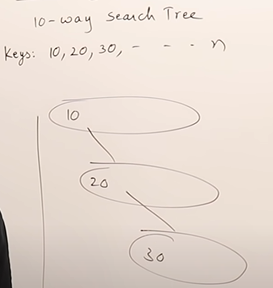 10-way Search Tree
Keys: 10, 20, 30, - - - n
10
20
30